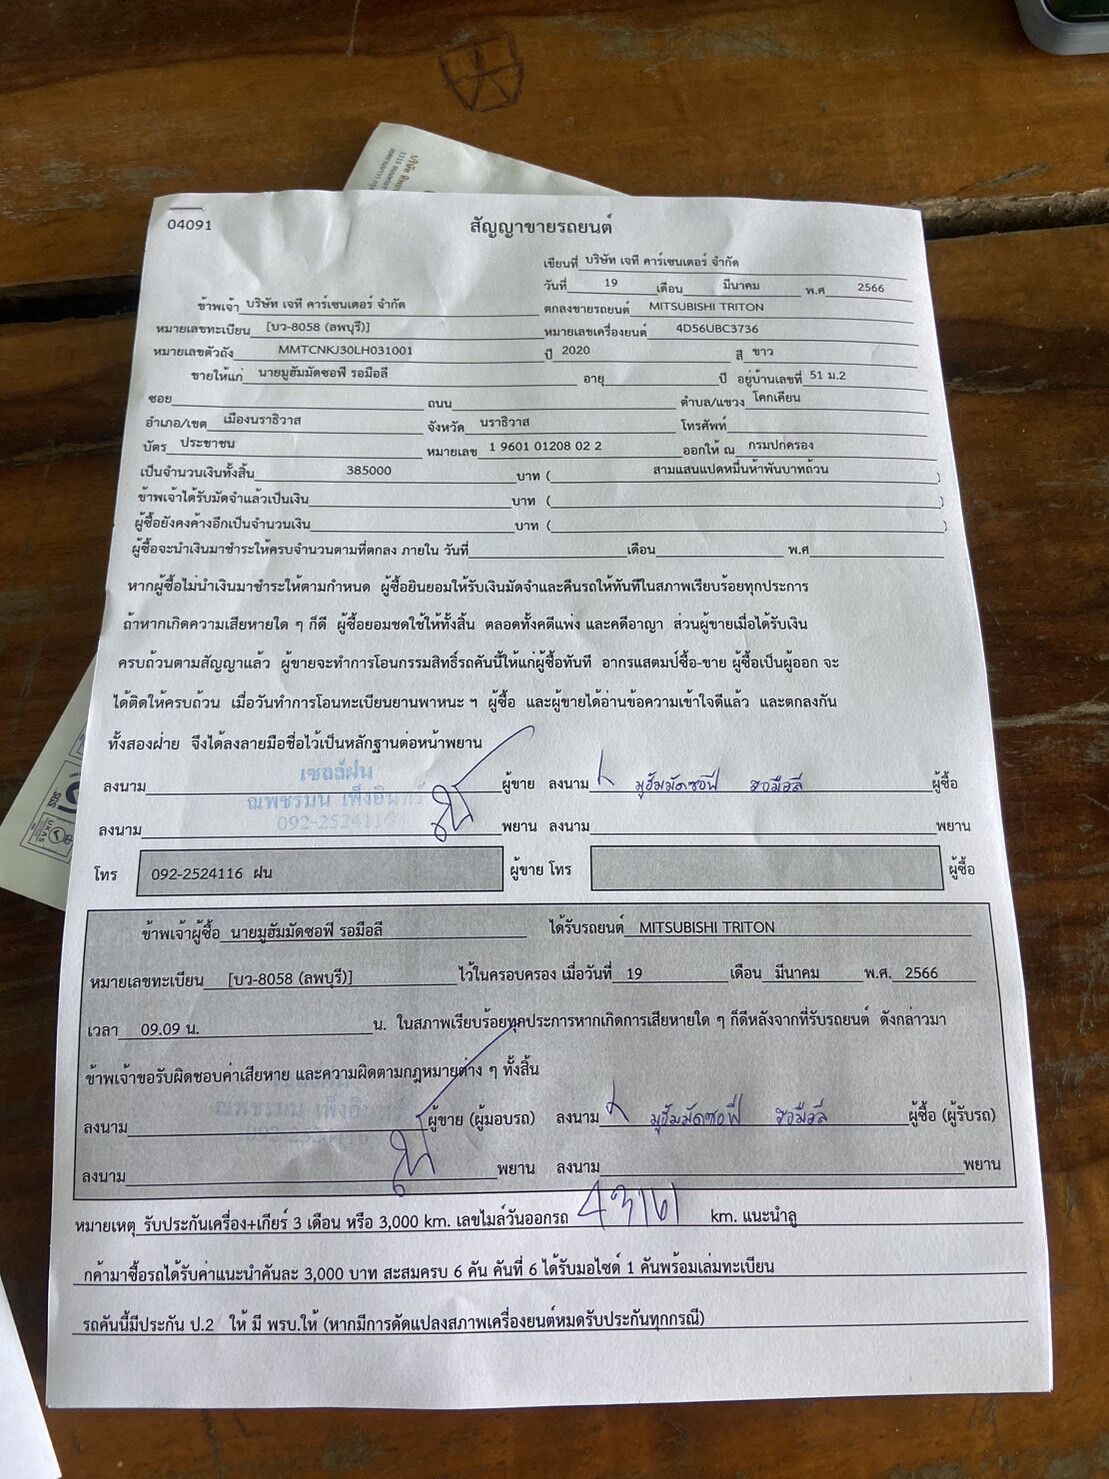 04091
สัญญาขายรถยนต์
เขียนที่ บริษัท เจที คาร์เซนเตอร์ จำกัด
วันที่ 19 เดือน มีนาคม พ.ศ 2566
ข้าพเจ้า บริษัท เจที คาร์เซนเตอร์ จำกัด ตกลงขายรถยนต์ MITSUBISHI TRITON
หมายเลขทะเบียน [บว-8058 (ลพบุรี)] หมายเลขเครื่องยนต์ 4D56UBC3736
หมายเลขตัวถัง MMTCNKJ30LH031001 ปี 2020 สี ขาว
ขายให้แก่ นายมูฮัมมัดซอฟี รอมือลี อายุ ปี อยู่บ้านเลขที่ 51 ม.2
ซอย ถนน ตำบล/แขวง โคกเคียน
อำเภอ/เขต เมืองนราธิวาส จังหวัด นราธิวาส โทรศัพท์
บัตร ประชาชน หมายเลข 1 9601 01208 02 2 ออกให้ ณ กรมปกครอง
เป็นจำนวนเงินทั้งสิ้น 385000 บาท ( สามแสนแปดหมื่นห้าพันบาทถ้วน )
ข้าพเจ้าได้รับมัดจำแล้วเป็นเงิน บาท ( )
ผู้ซื้อยังคงค้างอีกเป็นจำนวนเงิน บาท ( )
ผู้ซื้อจะนำเงินมาชำระให้ครบจำนวนตามที่ตกลง ภายใน วันที่ เดือน พ.ศ
หากผู้ซื้อไม่นำเงินมาชำระให้ตามกำหนด ผู้ซื้อยินยอมให้รับเงินมัดจำและคืนรถให้ทันทีในสภาพเรียบร้อยทุกประการ
ถ้าหากเกิดความเสียหายใด ๆ ก็ดี ผู้ซื้อยอมชดใช้ให้ทั้งสิ้น ตลอดทั้งคดีแพ่ง และคดีอาญา ส่วนผู้ขายเมื่อได้รับเงิน
ครบถ้วนตามสัญญาแล้ว ผู้ขายจะทำการโอนกรรมสิทธิ์รถคันนี้ให้แก่ผู้ซื้อทันที อากรแสตมป์ซื้อ-ขาย ผู้ซื้อเป็นผู้ออก จะ
ได้ติดให้ครบถ้วน เมื่อวันทำการโอนทะเบียนยานพาหนะ ฯ ผู้ซื้อ และผู้ขายได้อ่านข้อความเข้าใจดีแล้ว และตกลงกัน
ทั้งสองฝ่าย จึงได้ลงลายมือชื่อไว้เป็นหลักฐานต่อหน้าพยาน
เซลล์ฝน
ณพชรมน เพ็งอินทร์
092-2524116
ลงนาม ผู้ขาย ลงนาม มูฮัมมัดซอฟี รอมือลี ผู้ซื้อ
ลงนาม พยาน ลงนาม พยาน
โทร 092-2524116 ฝน ผู้ขาย โทร ผู้ซื้อ
ข้าพเจ้าผู้ซื้อ นายมูฮัมมัดซอฟี รอมือลี ได้รับรถยนต์ MITSUBISHI TRITON
หมายเลขทะเบียน [บว-8058 (ลพบุรี)] ไว้ในครอบครอง เมื่อวันที่ 19 เดือน มีนาคม พ.ศ. 2566
เวลา 09.09 น. น. ในสภาพเรียบร้อยทุกประการหากเกิดการเสียหายใด ๆ ก็ดีหลังจากที่รับรถยนต์ ดังกล่าวมา
ข้าพเจ้าขอรับผิดชอบค่าเสียหาย และความผิดตามกฎหมายต่าง ๆ ทั้งสิ้น
ณพชรมน เพ็งอินทร์
ลงนาม ผู้ขาย (ผู้มอบรถ) ลงนาม มูฮัมมัดซอฟี รอมือลี ผู้ซื้อ (ผู้รับรถ)
ลงนาม พยาน ลงนาม พยาน
หมายเหตุ รับประกันเครื่อง+เกียร์ 3 เดือน หรือ 3,000 km. เลขไมล์วันออกรถ 43161 km. แนะนำลู
กค้ามาซื้อรถได้รับค่าแนะนำคันละ 3,000 บาท สะสมครบ 6 คัน คันที่ 6 ได้รับมอไซด์ 1 คันพร้อมเล่มทะเบียน
รถคันนี้มีประกัน ป.2 ให้ มี พรบ.ให้ (หากมีการดัดแปลงสภาพเครื่องยนต์หมดรับประกันทุกกรณี)